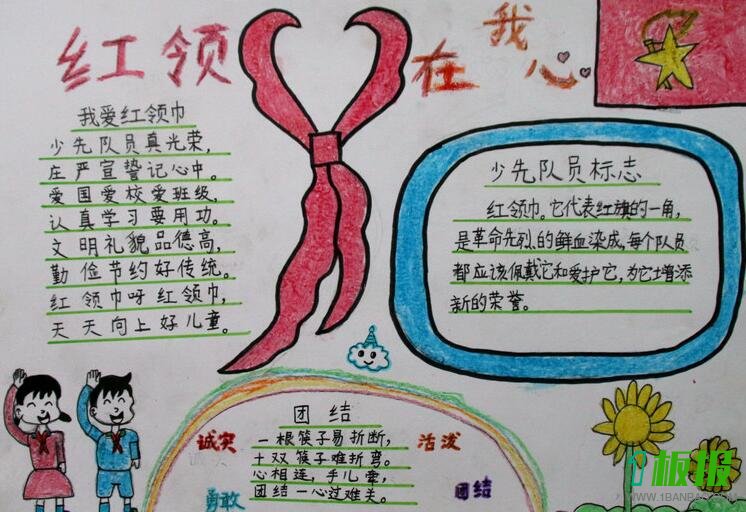 红领 在我心
我爱红领巾
少先队员真光荣,
庄严宣誓记心中。
爱国爱校爱班级,
认真学习要用功。
文明礼貌品德高,
勤俭节约好传统。
红领巾呀红领巾,
天天向上好儿童。
少先队员标志
红领巾。它代表红旗的一角,
是革命先烈的鲜血染成,每个队员
都应该佩戴它和爱护它,为它增添
新的荣誉。
团结
一根筷子易折断,
十双筷子难折弯。
心相连,手儿牵,
团结一心过难关。
诚实
勇敢
活泼
团结
板报
WWW.1BANBAO.COM